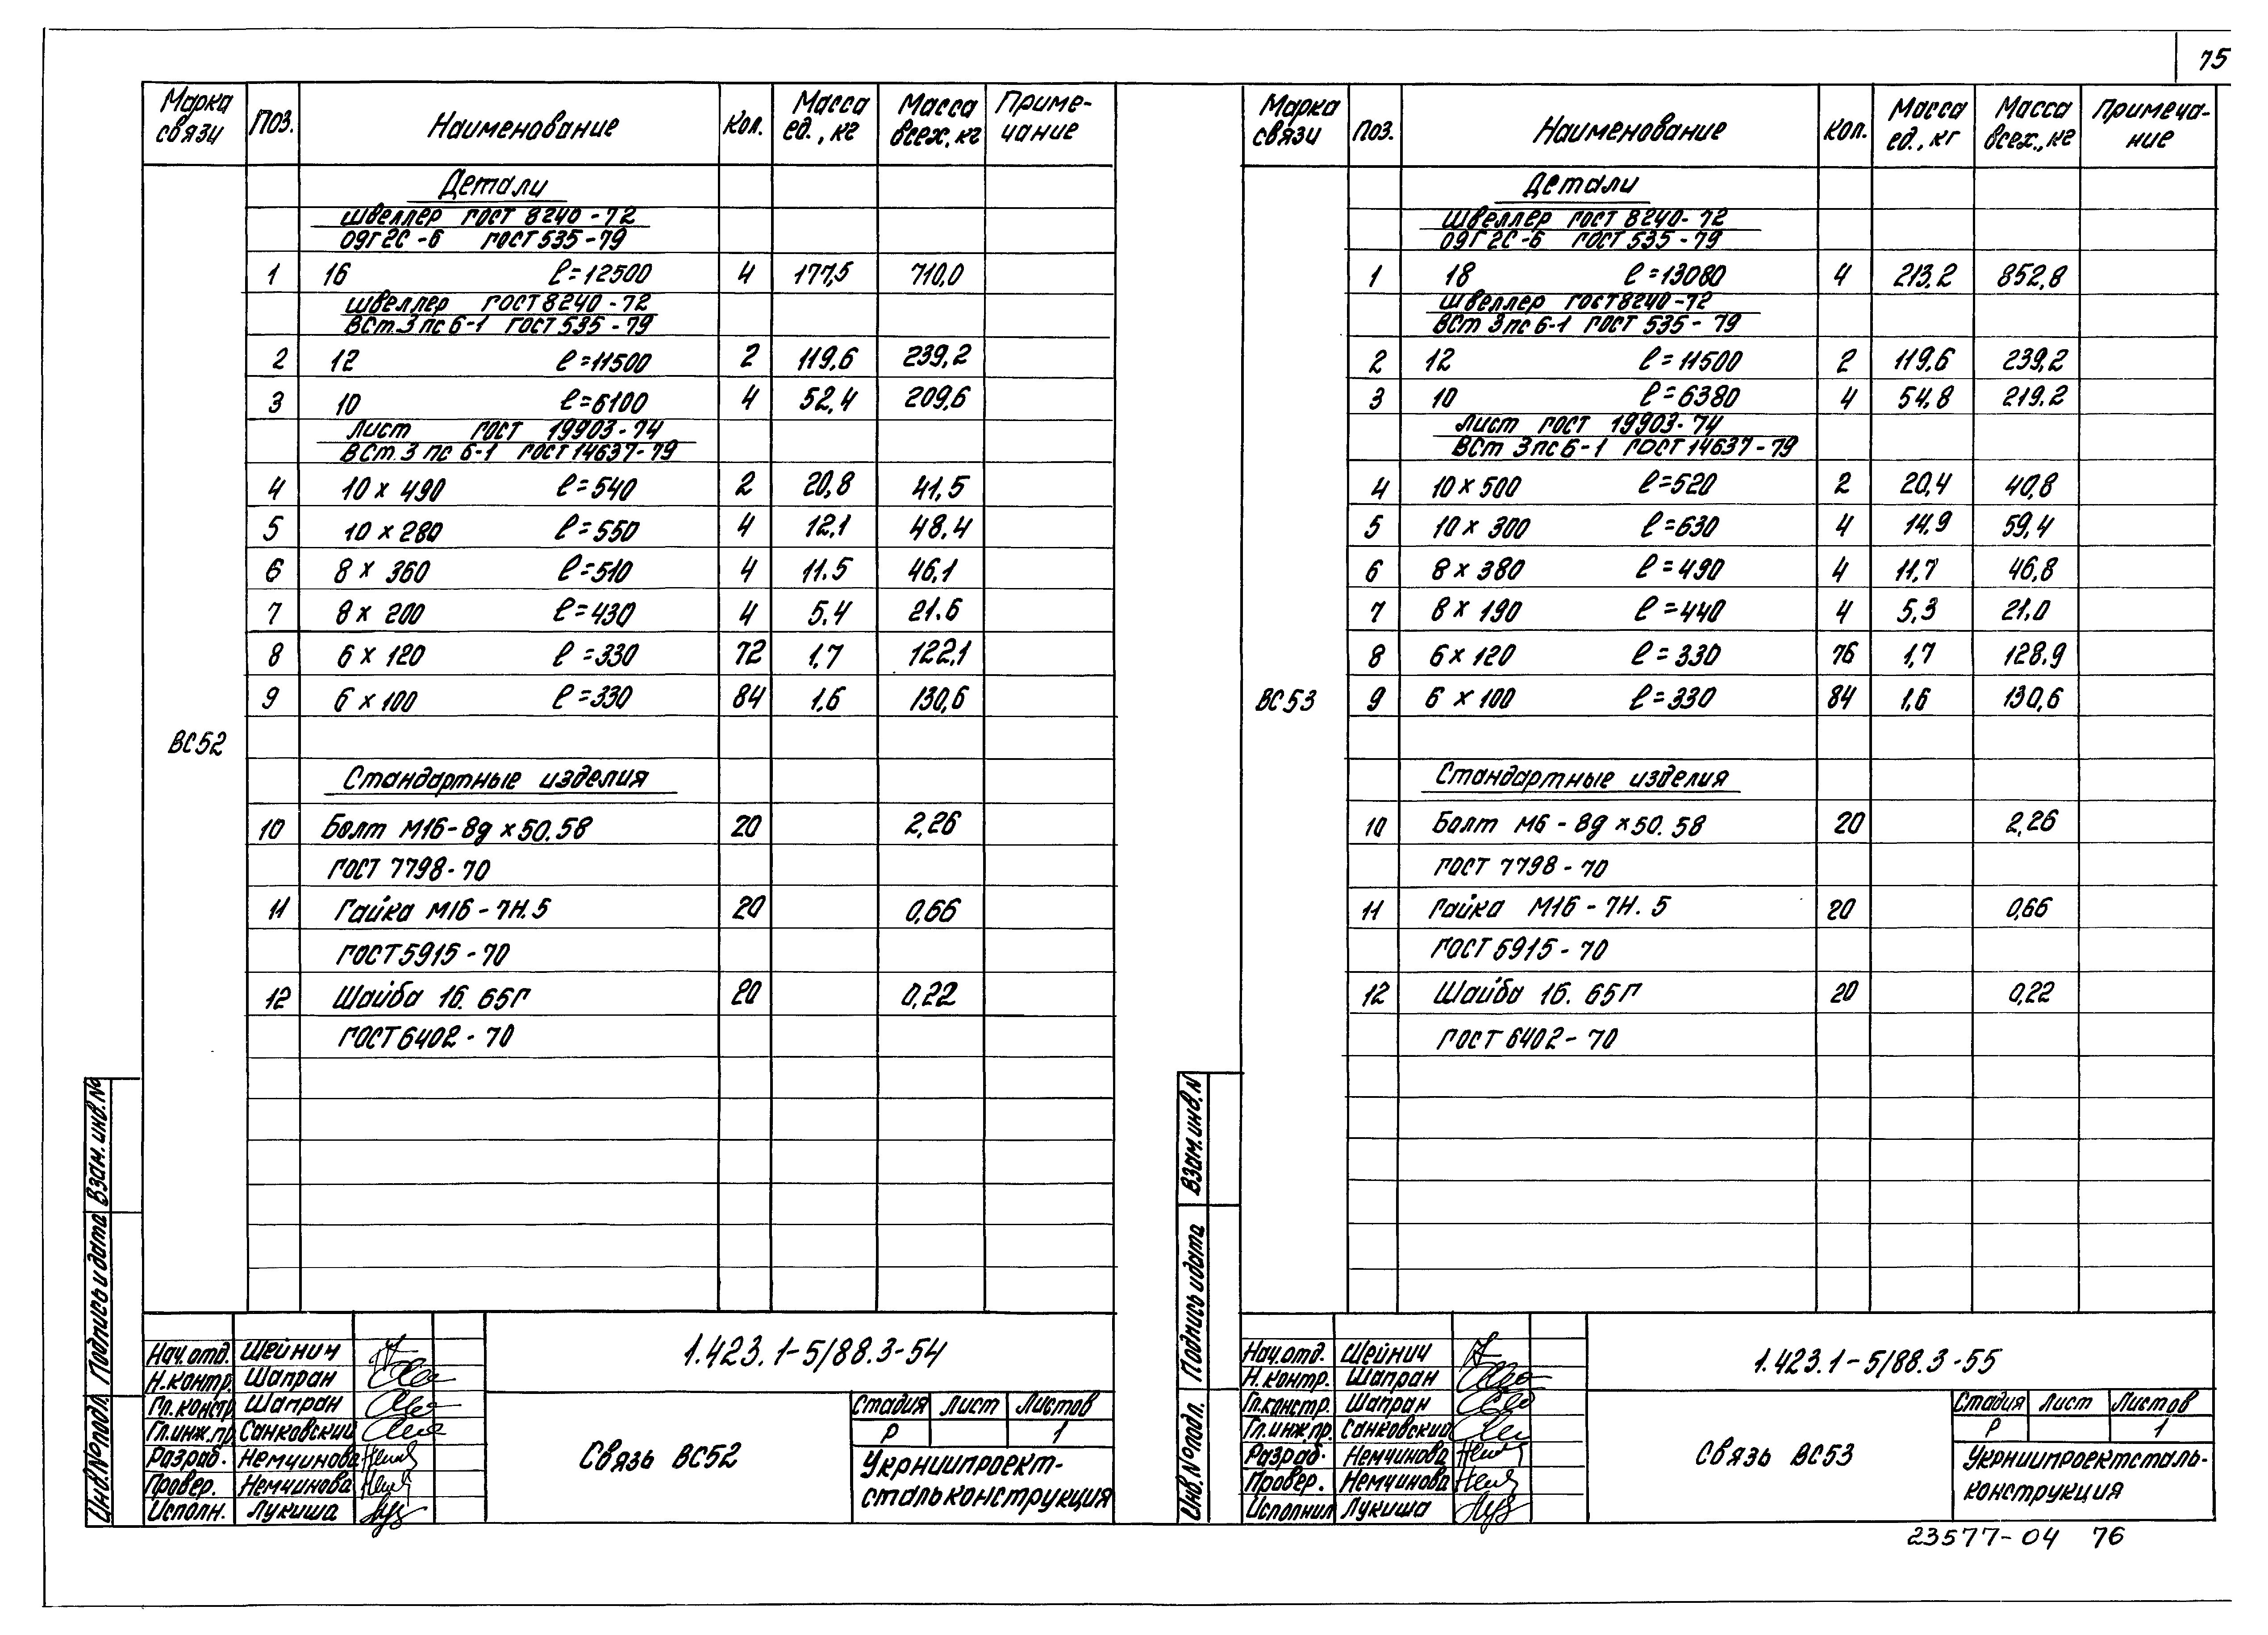 75
Марка связи Поз. Наименование Кол. Масса ед., кг Масса всех, кг Приме-чание
Детали
Швеллер ГОСТ 8240-72
09Г2С-6 ГОСТ 535-79
1 16 ℓ=12500 4 177,5 710,0
Швеллер ГОСТ 8240-72
ВСт.3пс6-1 ГОСТ 535-79
2 12 ℓ=11500 2 119,6 239,2
3 10 ℓ=6100 4 52,4 209,6
Лист ГОСТ 19903-74
ВСт.3пс6-1 ГОСТ 14637-79
4 10 х 490 ℓ=540 2 20,8 41,5
5 10 х 280 ℓ=550 4 12,1 48,4
6 8 х 360 ℓ=510 4 11.5 46,1
7 8 х 200 ℓ=430 4 5,4 21.6
8 6 х 120 ℓ=330 72 1,7 122,1
9 6 х 100 ℓ=330 84 1,6 130,6
ВС52
Стандартные изделия
10 Болт М16-8g х 50.58 20 2,26
ГОСТ 7798-70
11 Гайка М16-7Н.5 20 0,66
ГОСТ 5915-70
12 Шайба 16.65Г 20 0,22
ГОСТ 6402-70
Взам.инв.№
Подпись и дата
Инв.№подл.
Нач.отд. Шейнин
Н.контр. Шапран
Гл.констр. Шапран
Гл.инж.пр. Санковский
Разраб. Немчинова
Провер. Немчинова
Исполн. Лукиша
1.423.1-5/88.3-54
Связь ВС52
Стадия Лист Листов
Р 1
Укрниипроект-
стальконструкция
Марка связи Поз. Наименование Кол. Масса ед., кг Масса всех., кг Примеча-ние
Детали
Швеллер ГОСТ 8240-72
09Г2С-6 ГОСТ 535-79
1 18 ℓ=13080 4 213.2 852,8
Швеллер ГОСТ 8240-72
ВСт 3пс6-1 ГОСТ 535-79
2 12 ℓ=11500 2 119,6 239,2
3 10 ℓ=6380 4 54,8 219.2
Лист ГОСТ 19903-74
ВСт 3пс6-1 ГОСТ 14637-79
4 10 х 500 ℓ=520 2 20,4 40,8
5 10 х 300 ℓ=630 4 14,9 59,4
6 8 х 380 ℓ=490 4 11,7 46,8
7 8 х 190 ℓ=440 4 5,3 21,0
8 6 х 120 ℓ=330 76 1,7 128,9
ВС53 9 6 х 100 ℓ=330 84 1,6 130,6
Стандартные изделия
10 Болт М6-8g х 50.58 20 2,26
ГОСТ 7798-70
11 Гайка М16-7Н.5 20 0,66
ГОСТ 5915-70
12 Шайба 16.65Г 20 0,22
ГОСТ 6402-70
Взам.инв.N
Подпись и дата
Инв.№подл.
Нач.отд. Шейнич
Н.контр. Шапран
Гл.констр. Шапран
Гл.инж.пр. Санковский
Разраб. Немчинова
Провер. Немчинова
Исполнил Лукиша
1.423.1-5/88.3-55
Связь ВС53
Стадия Лист Листов
Р 1
Укрниипроектсталь-
конструкция
23577-04 76